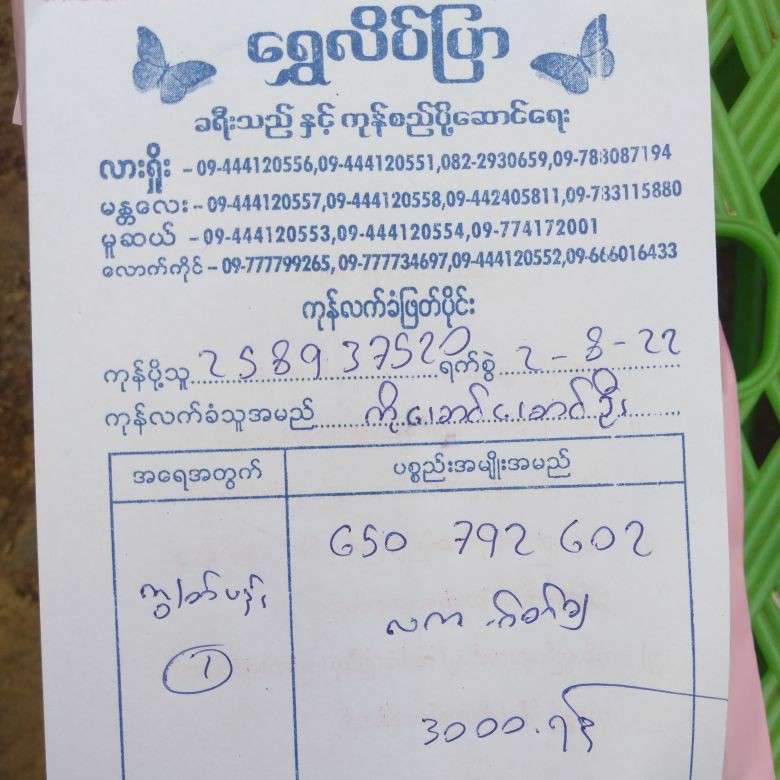 ရွှေလိပ်ပြာ
ခရီးသည် နှင့် ကုန်စည်ပို့ဆောင်ရေး
လားရှိုး - 09-444120556,09-444120551,082-2930659,09-783087194
မန္တလေး - 09-444120557,09-444120558,09-442405811,09-783115880
မူဆယ် - 09-444120553,09-444120554,09-774172001
လောက်ကိုင် - 09-777799265, 09-777734697,09-444120552,09-666016433
ကုန်လက်ခံဖြတ်ပိုင်း
ကုန်ပို့သူ 258937520 ရက်စွဲ 2-8-22
ကုန်လက်ခံသူအမည် ကိုအောင်အောင်ဦး
အရေအတွက် ပစ္စည်းအမျိုးအမည်
650 792602
1
3000.ရှင်း